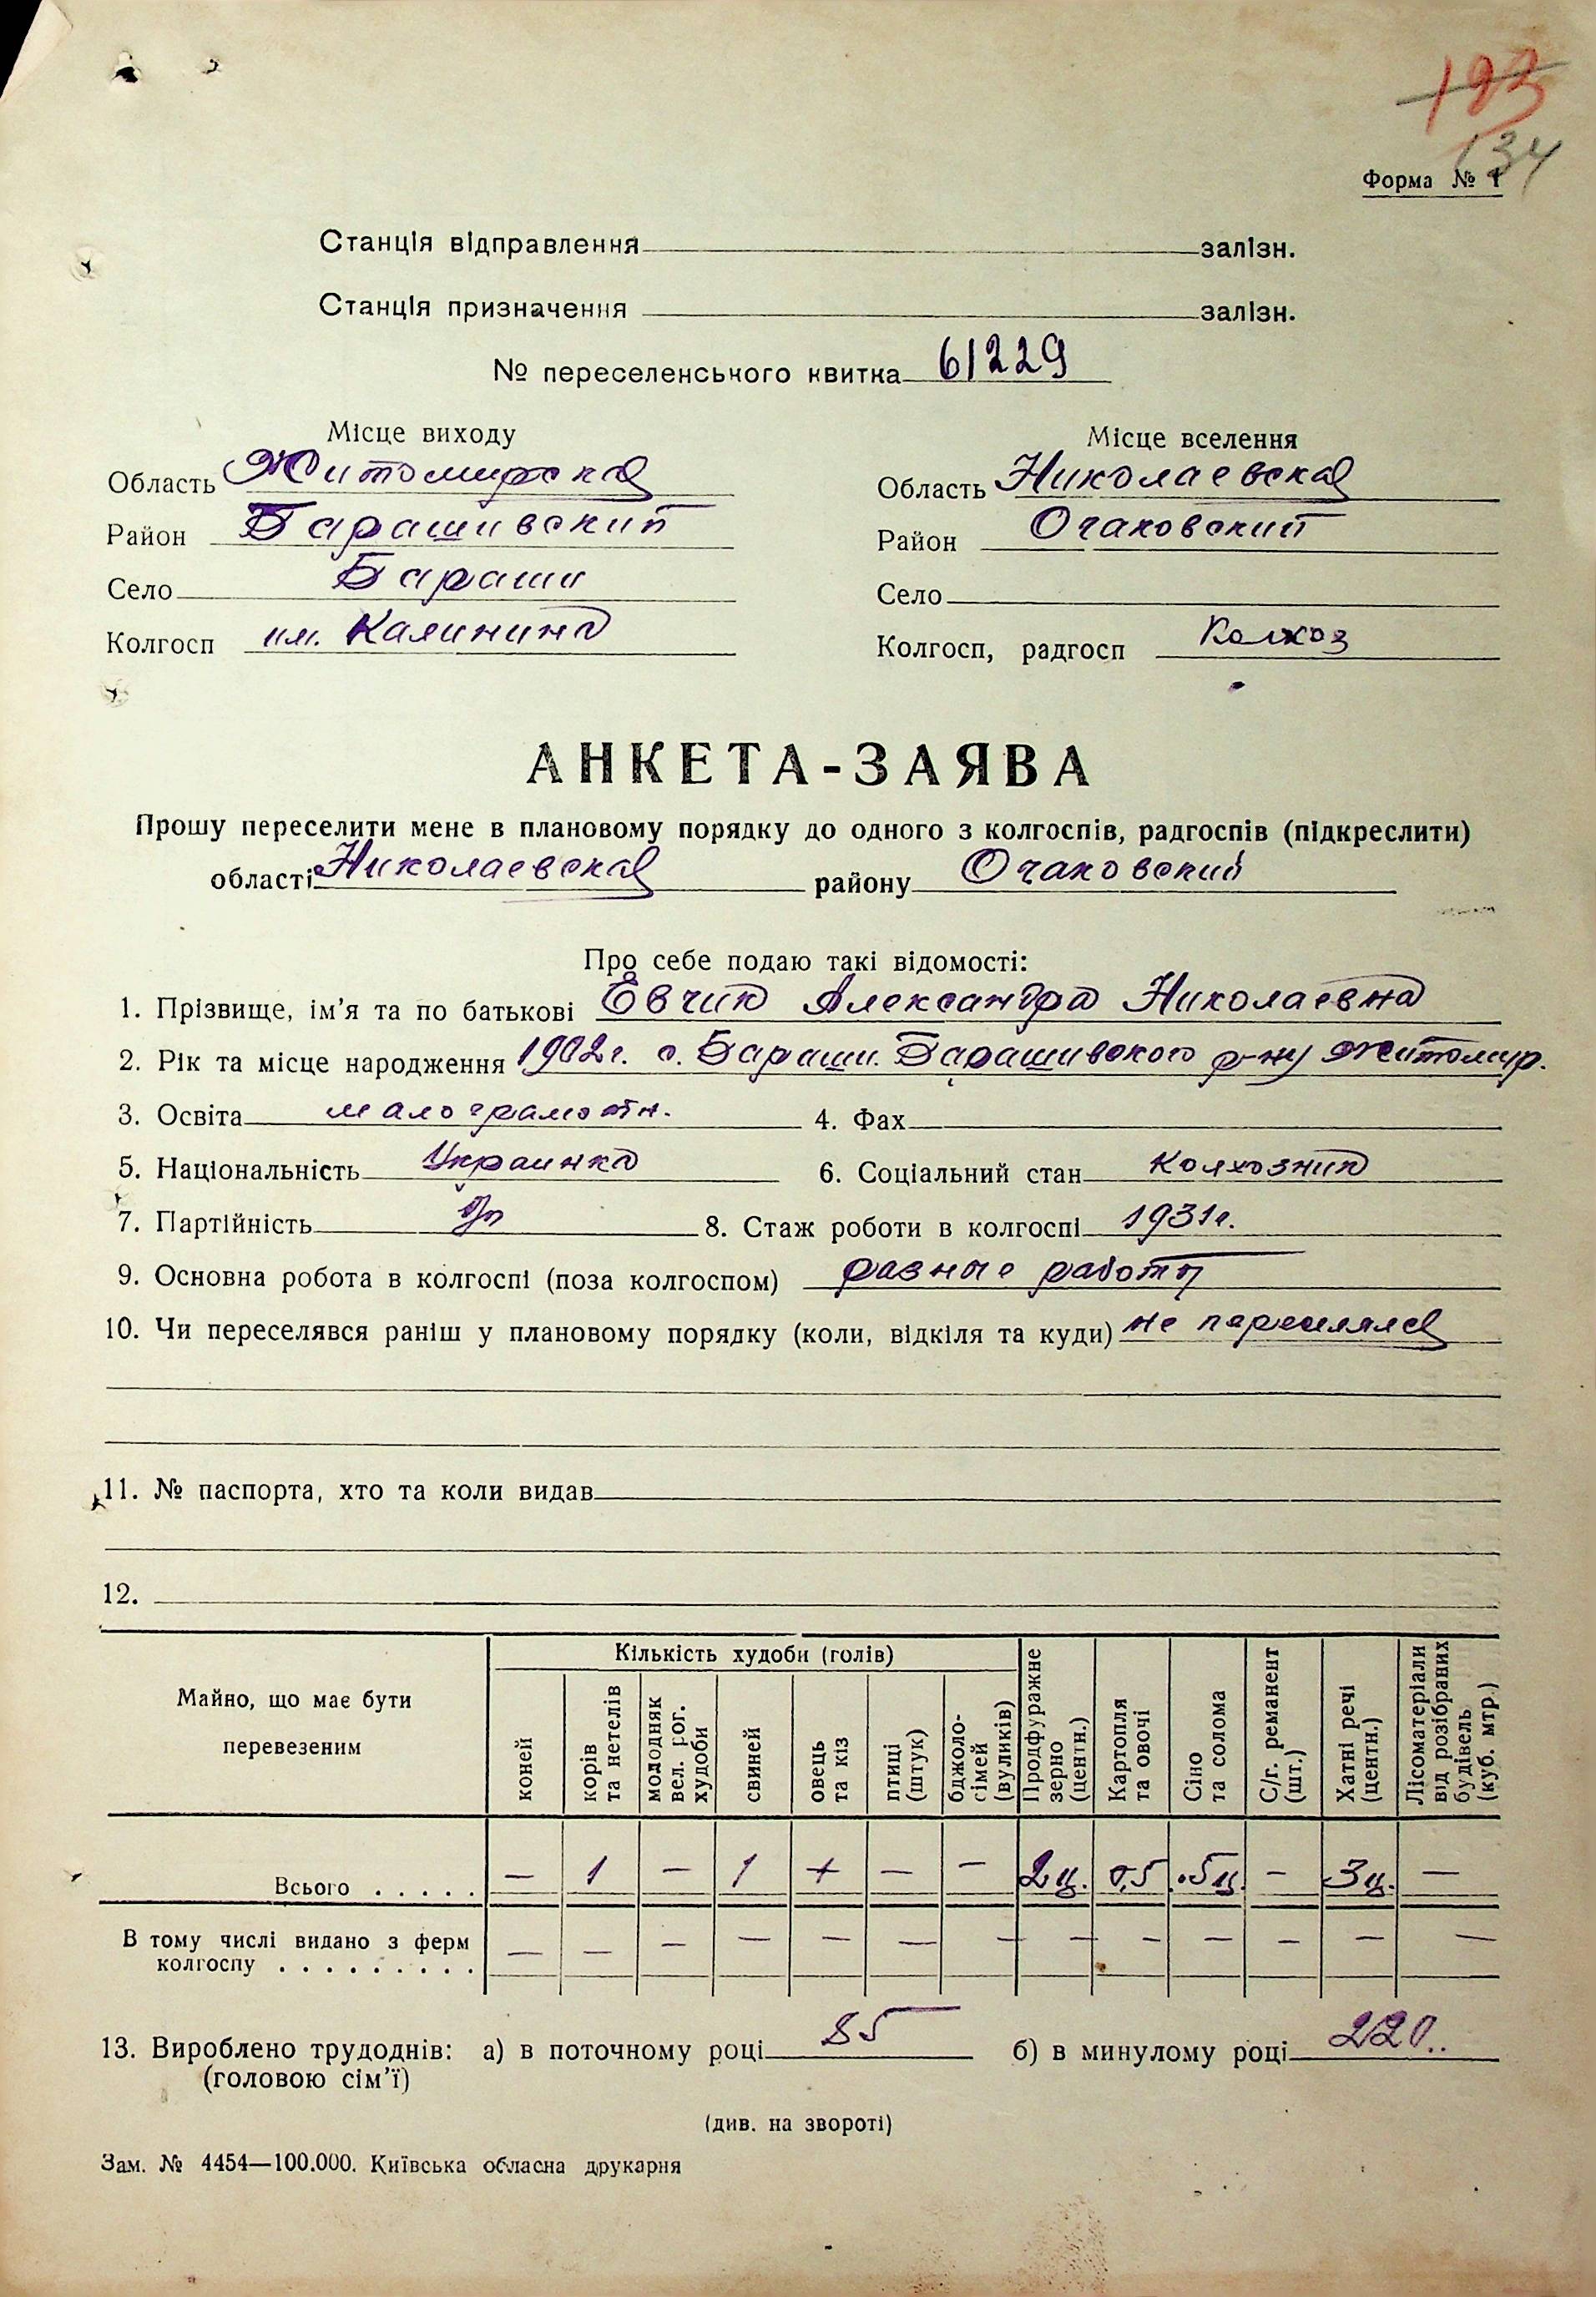 123
134
Форма № 1
Станція відправлення залізн.
Станція призначення залізн.
№ переселенського квитка 61229
Місце виходу
Область Житомирская
Район Барашивский
Село Бараши
Колгосп им. Калинина
Місце вселення
Область Николаевская
Район Очаковский
Село
Колгосп, радгосп Колхоз
АНКЕТА-ЗАЯВА
Прошу переселити мене в плановому порядку до одного з колгоспів, радгоспів (підкреслити)
області Николаевская району Очаковский
Про себе подаю такі відомості:
1. Прізвище, ім'я та по батькові Евчик Александра Николаевна
2. Рік та місце народження 1902г. с. Бараши. Барашивского р-ну Житомир.
3. Освіта малограмотн. 4. Фах
5. Національність Украинка 6. Соціальний стан колхозник
7. Партійність б/п 8. Стаж роботи в колгоспі 1931г.
9. Основна робота в колгоспі (поза колгоспом) разные работы
10. Чи переселявся раніш у плановому порядку (коли, відкіля та куди) не переселялся
11. № паспорта, хто та коли видав
12.
Майно, що має бути перевезеним
Кількість худоби (голів)
коней
корів та нетелів
молодняк вел. рог. худоби
свиней
овець та кіз
птиці (штук)
бджоло-сімей (вуликів)
Продфуражне зерно (центн.)
Картопля та овочі
Сіно та солома
С/г. реманент (шт.)
Хатні речі (центн.)
Лісоматеріали від розібраних будівель (куб. мтр.)
Всього . . . . . — 1 — 1 + — — 2ц. 0,5 .5ц. — 3ц. —
В тому числі видано з ферм
колгоспу . . . . . . . . . — — — — — — — — — — — — —
13. Вироблено трудоднів: а) в поточному році 85 б) в минулому році 220..
(головою сім'ї)
(див. на звороті)
Зам. № 4454—100.000. Київська обласна друкарня